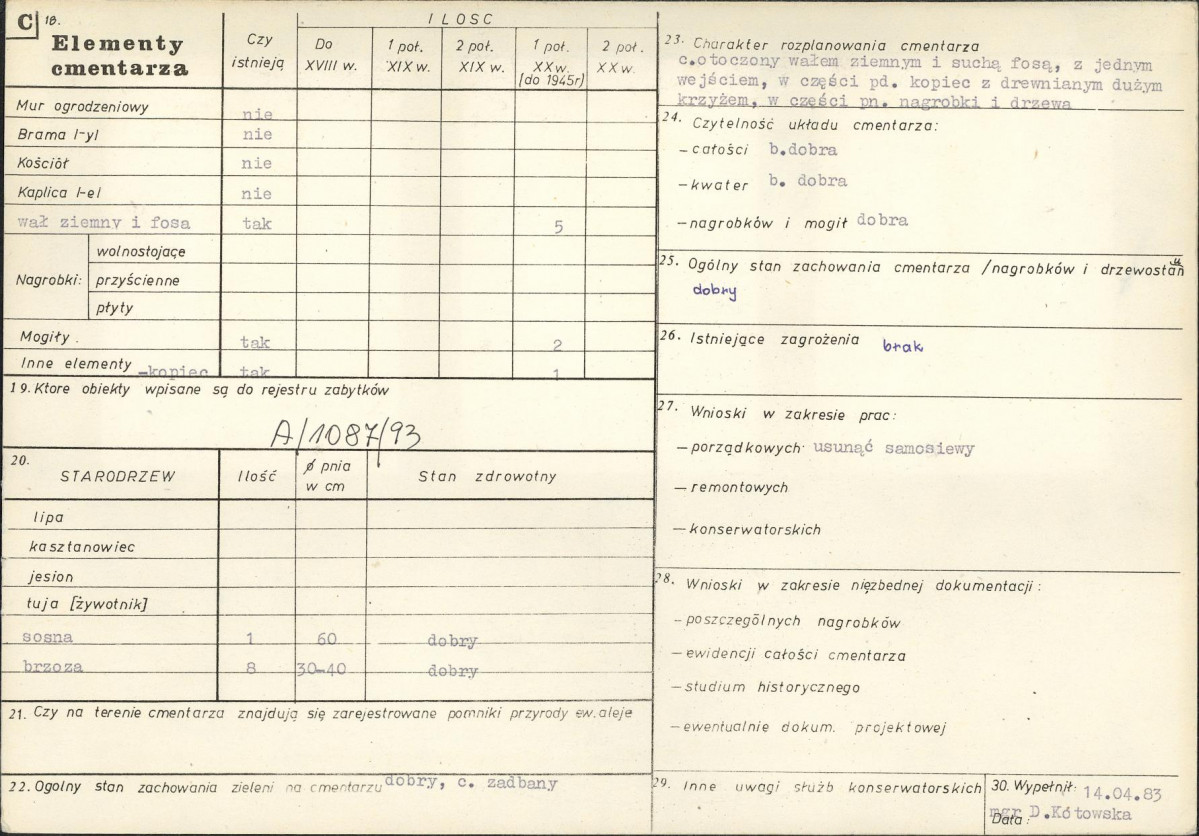 C 18.
Elementy cmentarza
Czy istnieją
ILOSC
Do XVIII w.
1 poł. XIX w.
2 poł. XIX w.
1 poł. XX w. [do 1945r]
2 poł. XX w.
Mur ogrodzeniowy nie
Brama /-y/ nie
Kościół nie
Kaplica /-e/ nie
wał ziemny i fosa tak 5
Nagrobki: wolnostojące
przyścienne
płyty
Mogiły . tak 2
Inne elementy -kopiec tak 1
19. Ktore obiekty wpisane są do rejestru zabytków
A/1087/93
20.
STARODRZEW Ilość ø pnia w cm Stan zdrowotny
lipa
kasztanowiec
jesion
tuja [żywotnik]
sosna 1 60 dobry
brzoza 8 30-40 dobry
21. Czy na terenie cmentarza znajdują się zarejestrowane pomniki przyrody ew. aleje
22. Ogolny stan zachowania zieleni na cmentarzu dobry, c. zadbany
23. Charakter rozplanowania cmentarza
c.otoczony wałem ziemnym i suchą fosą, z jednym
wejściem, w części pd. kopiec z drewnianym dużym
krzyżem, w części pn. nagrobki i drzewa
24. Czytelność układu cmentarza:
- całości b.dobra
- kwater b. dobra
- nagrobków i mogił dobra
25. Ogólny stan zachowania cmentarza /nagrobków i drzewostanu
dobry
26. Istniejące zagrożenia brak
27. Wnioski w zakresie prac:
- porządkowych usunąć samosiewy
- remontowych
- konserwatorskich
28. Wnioski w zakresie nięzbednej dokumentacji:
- poszczególnych nagrobków
- ewidencji całości cmentarza
- studium historycznego
- ewentualnie dokum. projektowej
29. Inne uwagi służb konserwatorskich
30. Wypełnił: 14.04.83
mgr D.Kótowska
Data: